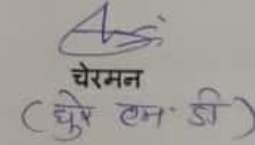 चेरमन
(घुरे एम. डी)